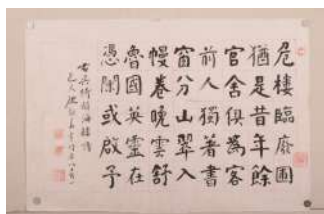 危樓臨廢圃
猶是昔年餘
官舍俱為客
前人獨著書
窗分山翠入
幔卷晚雲舒
魯國英靈在
憑闌或啟予